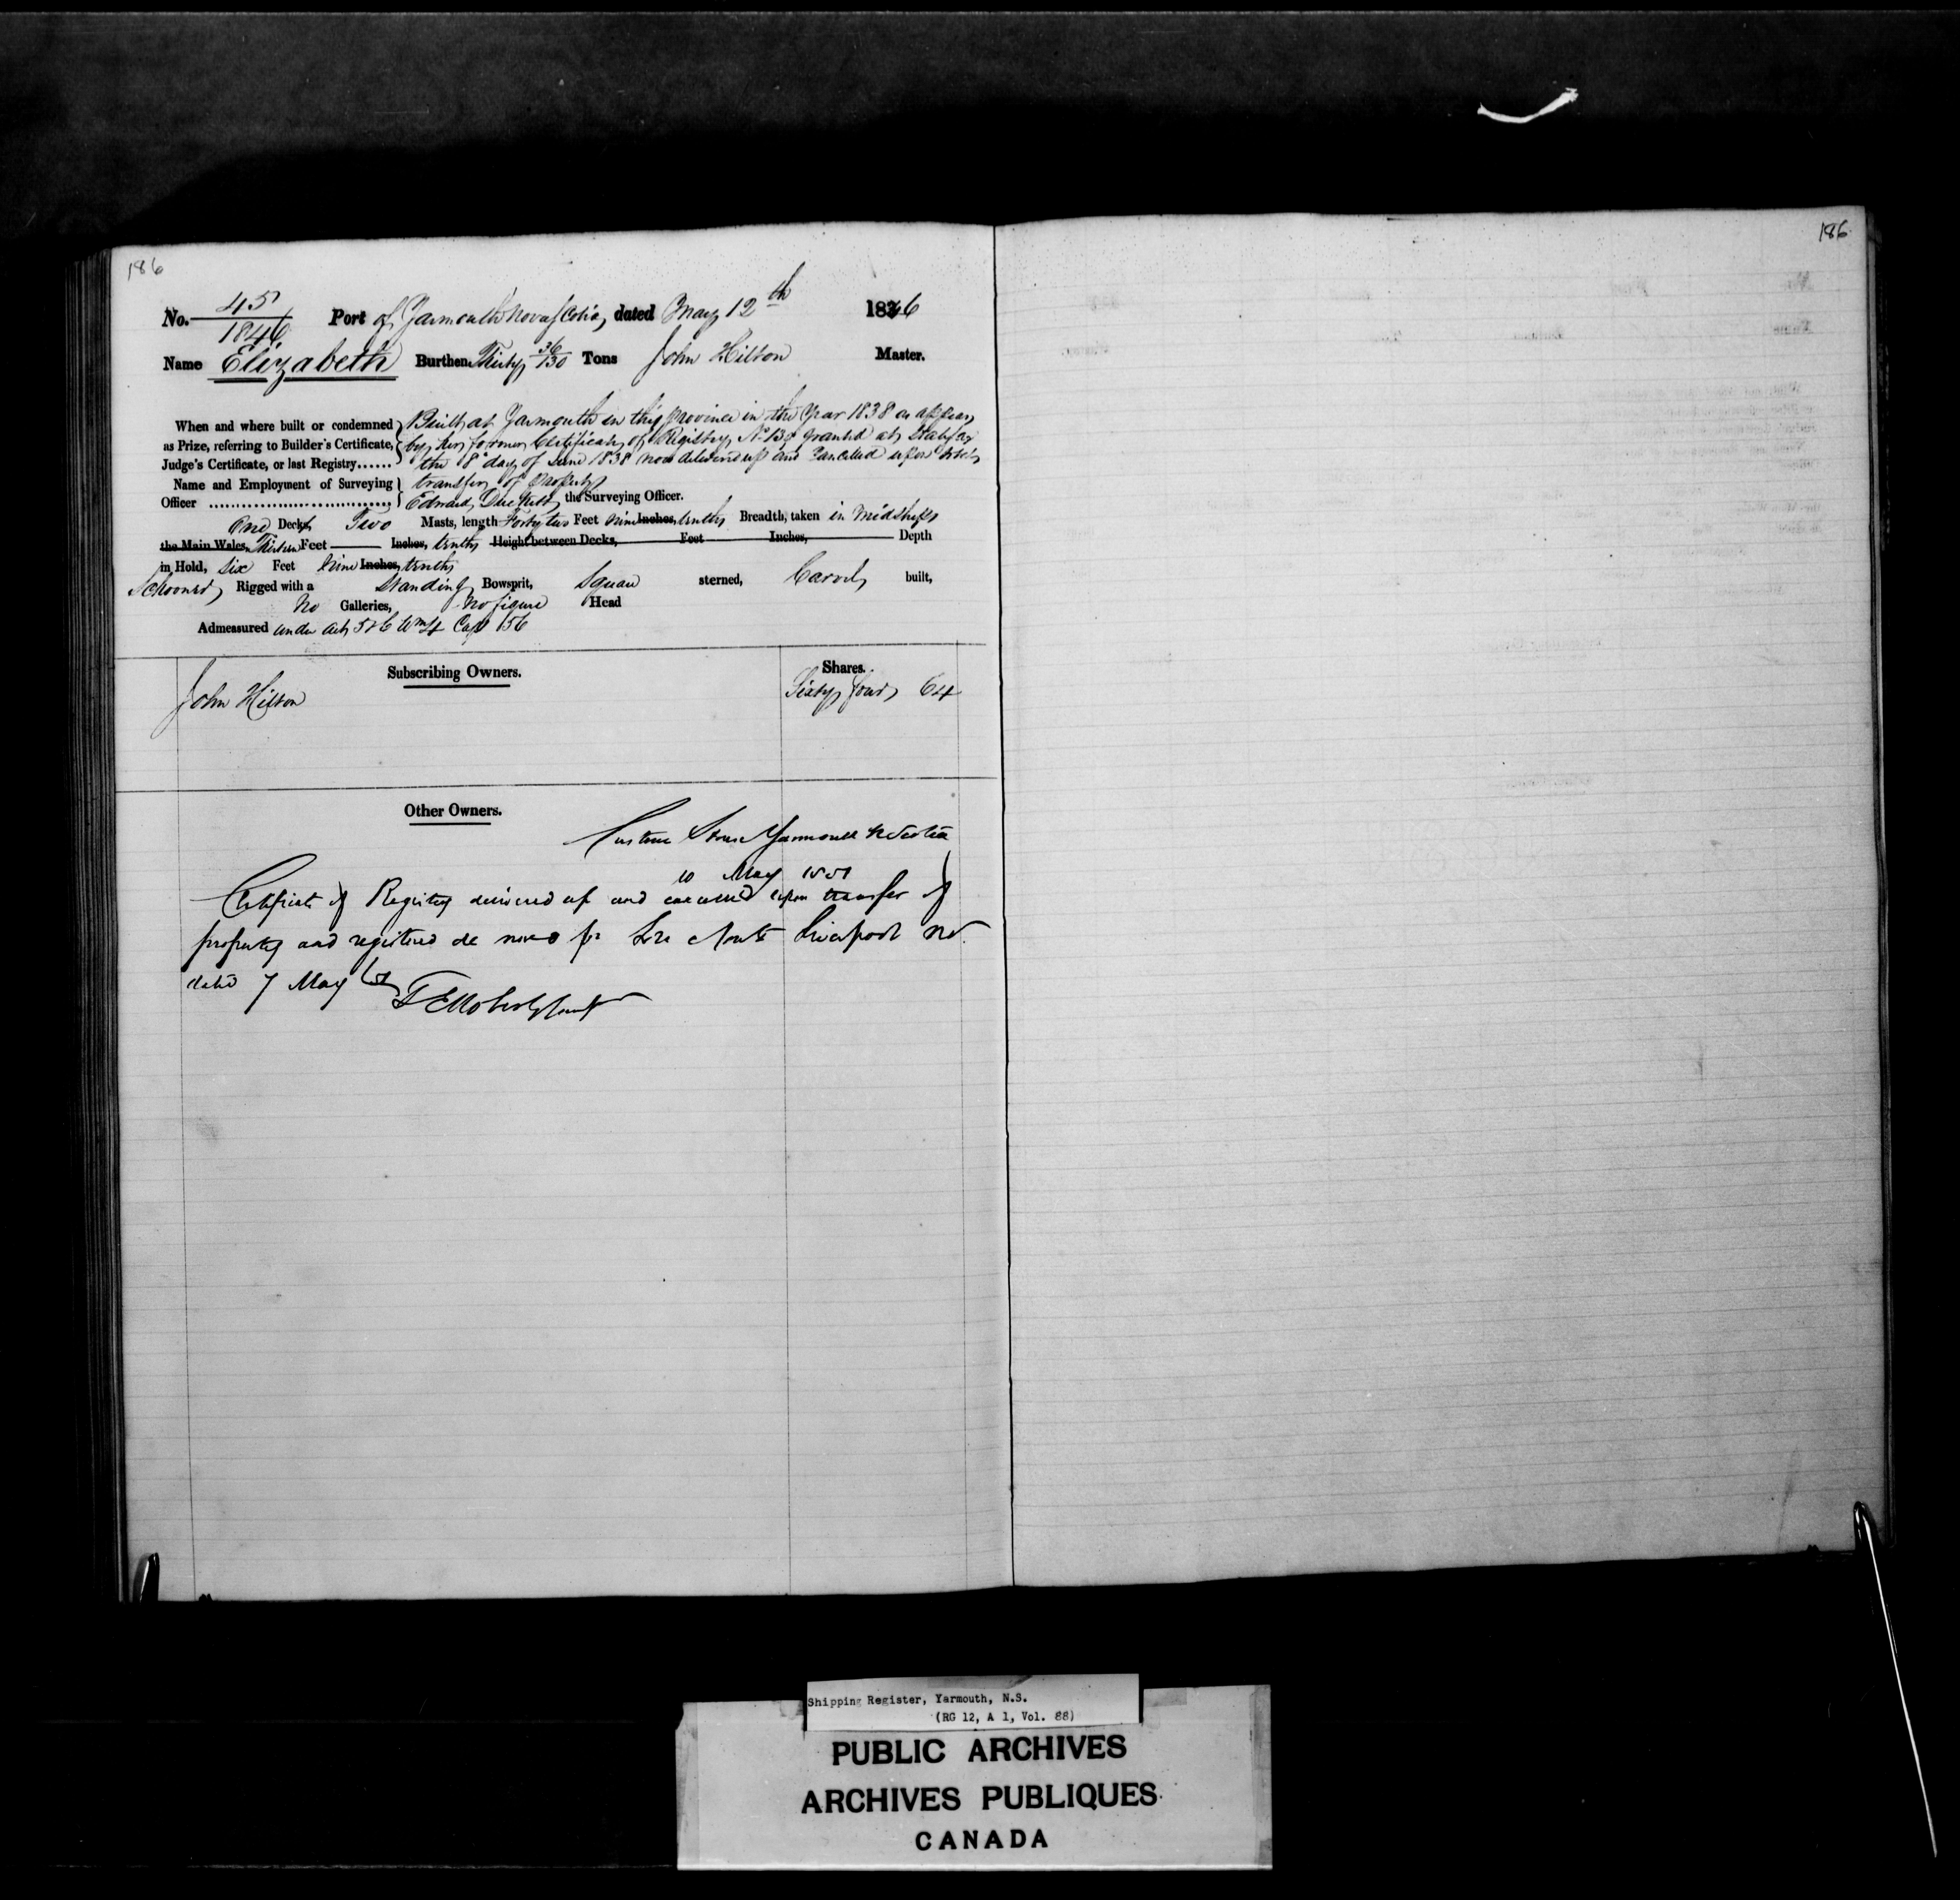 186
186
No. 45/1846 Port of Yarmouth Nova Scotia, dated May 12th 1846
Name Elizabeth Burthen Thirty 36/130 Tons John Hilton Master.
When and where built or condemned Built at Yarmouth in this province in the Year 1838 as appears
as Prize, referring to Builder's Certificate, by her former Certificate of Registry No 134 granted at Halifax
Judge's Certificate, or last Registry...... the 8 day of June 1838 now delivered up and Cancelled upon
Name and Employment of Surveying transfer of property
Officer ................................ Edward the Surveying Officer.
One Deck Two Masts, length Forty two Feet nine Inches, tenths Breadth, taken in Midships
the Main Wales, Thirteen Feet Inches, tenths Height between Decks, Feet Inches, Depth
in Hold, Six Feet nine Inches, tenths
Schooner Rigged with a Standing Bowsprit, Square sterned, Carvel built,
No Galleries, No figure Head
Admeasured under act 5 & 6 Wm 4 Cap 56
Subscribing Owners. Shares.
John Hilton Sixty four 64
Other Owners.
Custom House Yarmouth N Scotia
10 May 1851
Certificate of Registry delivered up and cancelled upon transfer of
property and registered de novo Liverpool
dated 7 May
Shipping Register, Yarmouth, N.S.
(RG 12, A 1, Vol. 88)
PUBLIC ARCHIVES
ARCHIVES PUBLIQUES
CANADA